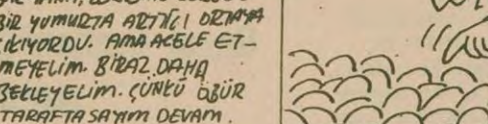 BİR YUMURTA ARTICI ORTAYA
ÇIKIYORDU. AMA ACELE ET-
MEYELİM. BİRAZ DAHA
BEKLEYELİM. ÇÜNKÜ ÖBÜR
TARAFTA SAYIM DEVAM